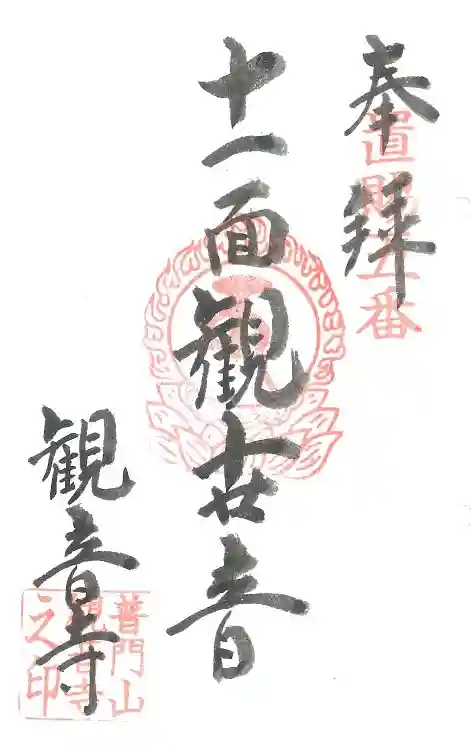 奉拝
置賜五番
十一面観世音
観音寺
普門山
観音寺
之印